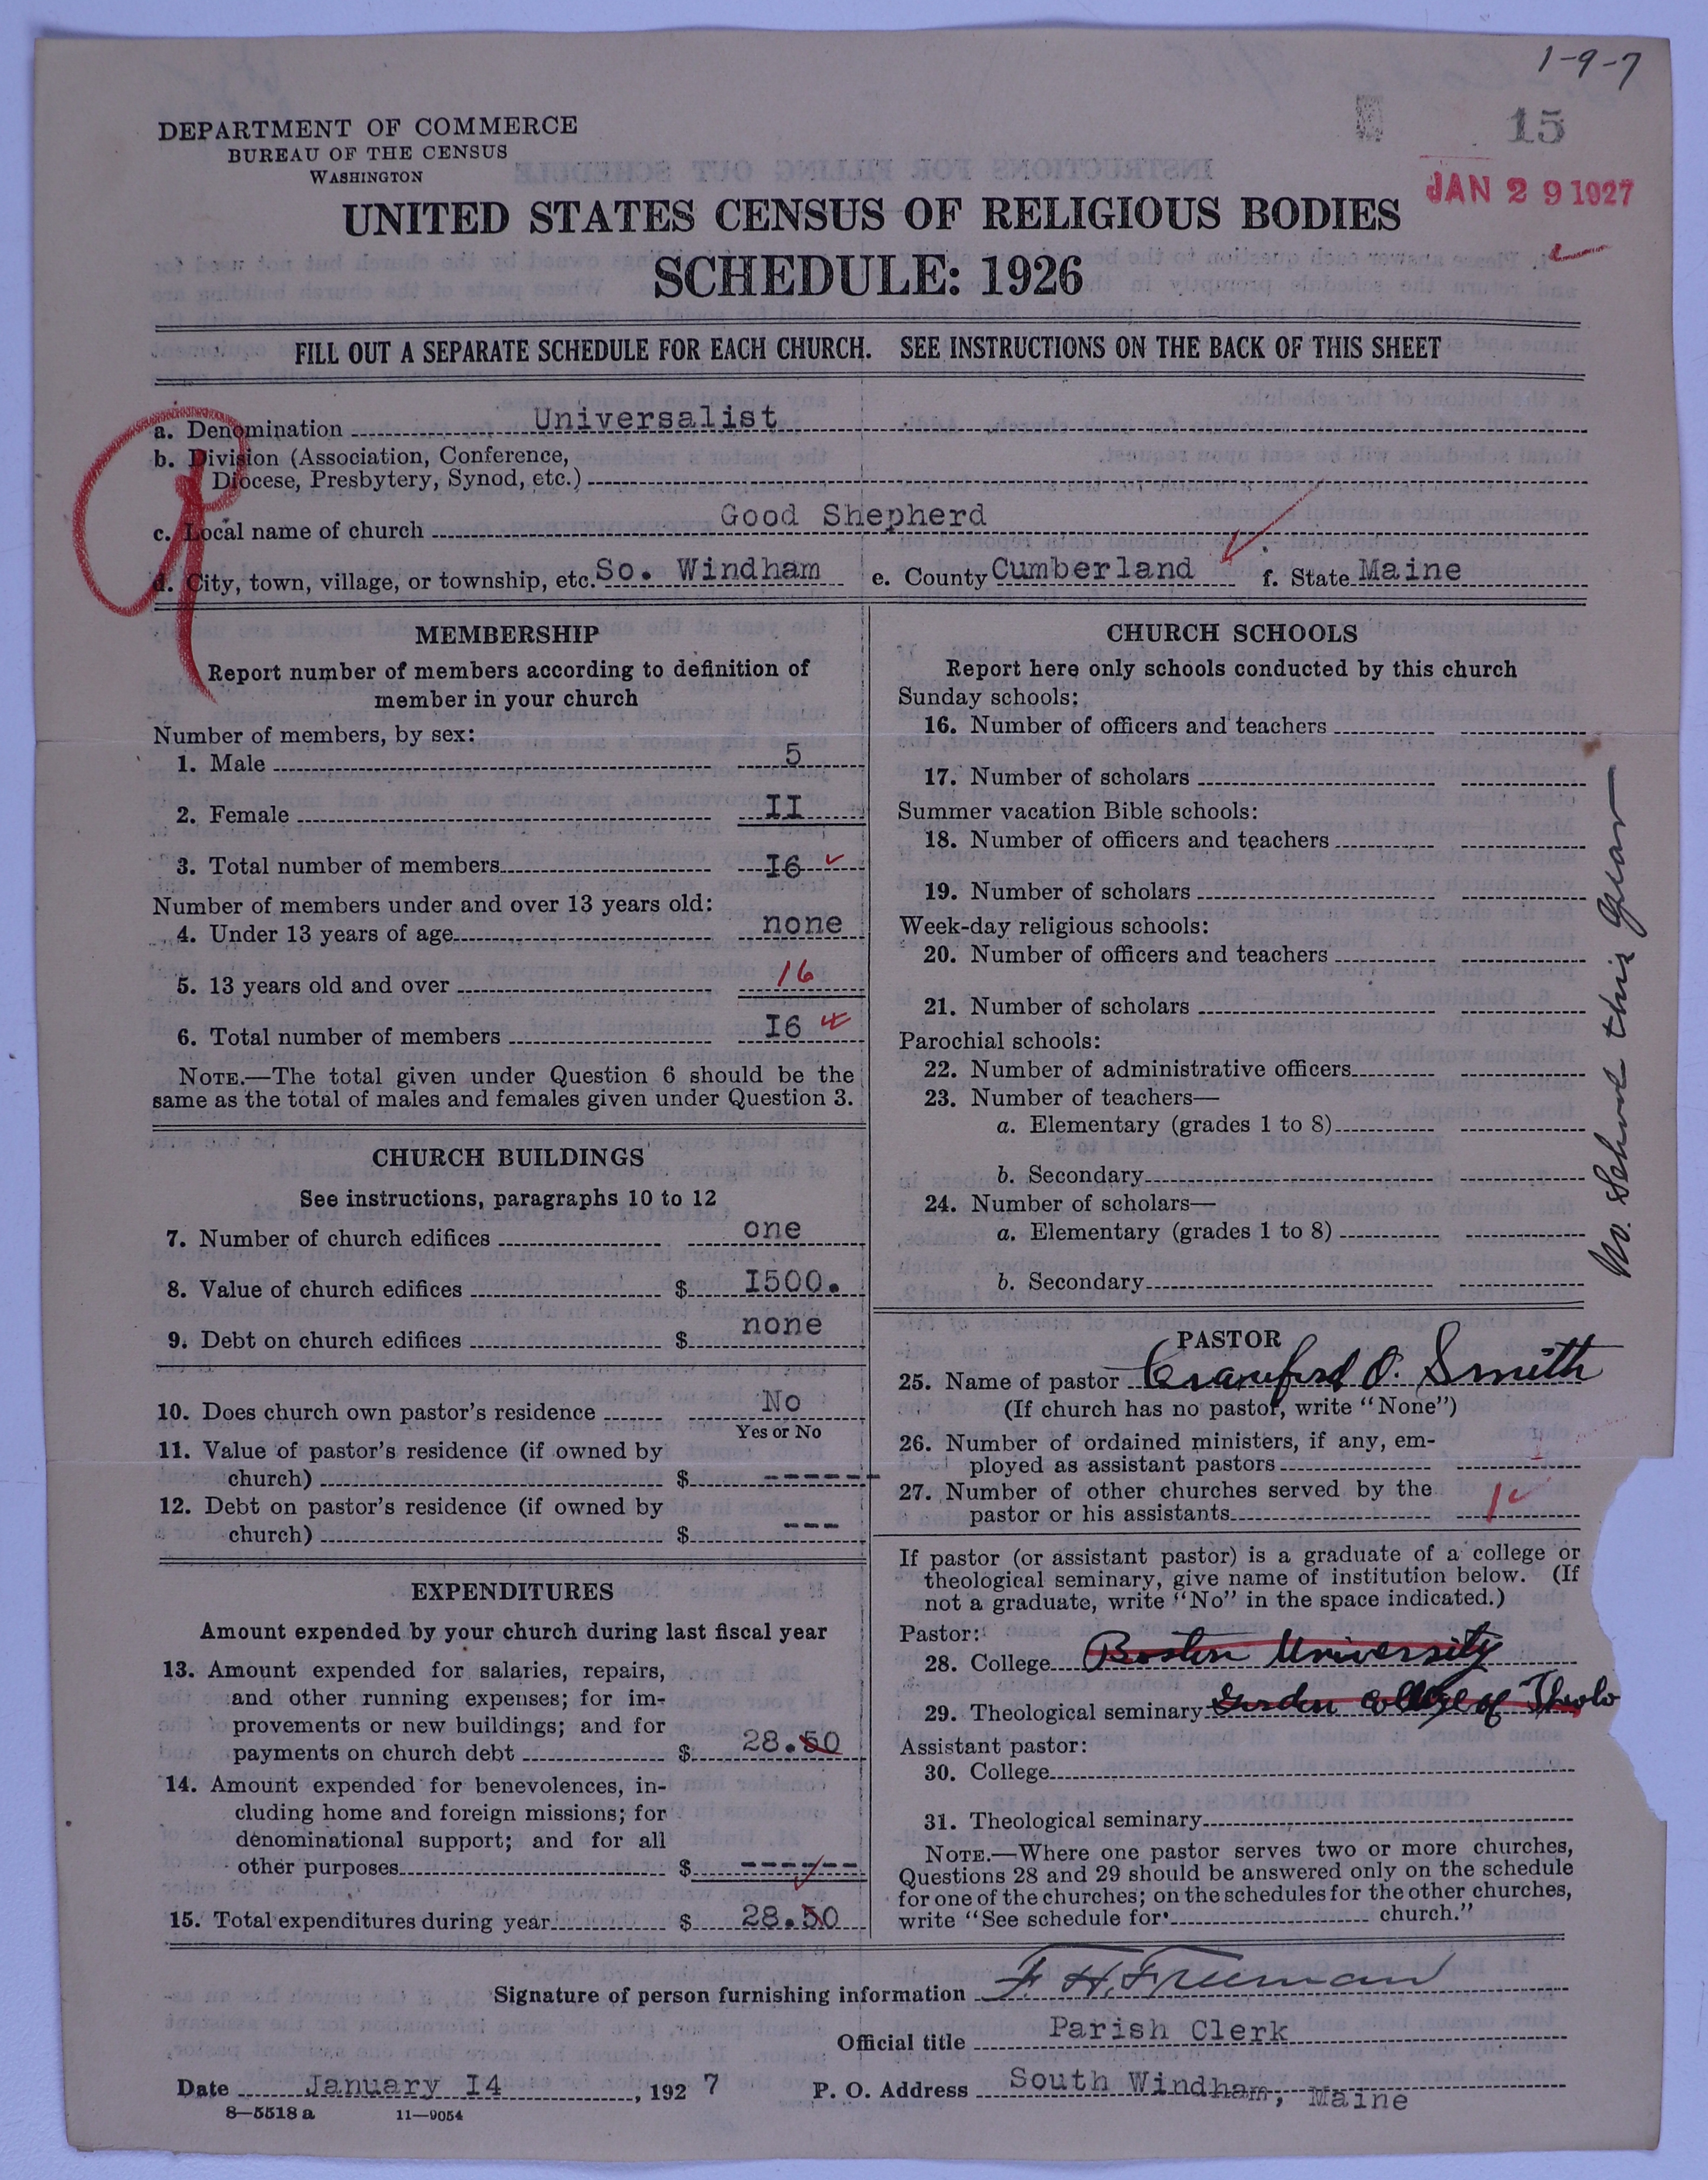 1-9-7
15
DEPARTMENT OF COMMERCE
BUREAU OF THE CENSUS
WASHINGTON
JAN 29 1927
UNITED STATES CENSUS OF RELIGIOUS BODIES
SCHEDULE: 1926
FILL OUT A SEPARATE SCHEDULE FOR EACH CHURCH. SEE INSTRUCTIONS ON THE BACK OF THIS SHEET
a. Denomination Universalist
b. Division (Association, Conference,
Diocese, Presbytery, Synod, etc.)
c. Local name of church Good Shepherd
d. City, town, village, or township, etc. So. Windham e. County Cumberland f. State Maine
MEMBERSHIP
Report number of members according to definition of
member in your church
Number of members, by sex:
1. Male 5
2. Female II
3. Total number of members I6
Number of members under and over 13 years old:
4. Under 13 years of age none
5. 13 years old and over 16
6. Total number of members I6
NOTE.—The total given under Question 6 should be the
same as the total of males and females given under Question 3.
CHURCH BUILDINGS
See instructions, paragraphs 10 to 12
7. Number of church edifices one
8. Value of church edifices $ I500.
9. Debt on church edifices $ none
10. Does church own pastor's residence No
Yes or No
11. Value of pastor's residence (if owned by
church) $ ------
12. Debt on pastor's residence (if owned by
church) $ ---
EXPENDITURES
Amount expended by your church during last fiscal year
13. Amount expended for salaries, repairs,
and other running expenses; for im-
provements or new buildings; and for
payments on church debt $ 28.50
14. Amount expended for benevolences, in-
cluding home and foreign missions; for
denominational support; and for all
other purposes $ ------
15. Total expenditures during year $ 28.50
CHURCH SCHOOLS
Report here only schools conducted by this church
Sunday schools:
16. Number of officers and teachers
17. Number of scholars
Summer vacation Bible schools:
18. Number of officers and teachers
19. Number of scholars
Week-day religious schools:
20. Number of officers and teachers
21. Number of scholars
Parochial schools:
22. Number of administrative officers
23. Number of teachers—
a. Elementary (grades 1 to 8)
b. Secondary
24. Number of scholars—
a. Elementary (grades 1 to 8)
b. Secondary
No. School this year
PASTOR
25. Name of pastor Crawford O. Smith
(If church has no pastor, write "None")
26. Number of ordained ministers, if any, em-
ployed as assistant pastors
27. Number of other churches served by the
pastor or his assistants 1
If pastor (or assistant pastor) is a graduate of a college or
theological seminary, give name of institution below. (If
not a graduate, write "No" in the space indicated.)
Pastor:
28. College Boston University
29. Theological seminary Gordon College of Theolo
Assistant pastor:
30. College
31. Theological seminary
NOTE.—Where one pastor serves two or more churches,
Questions 28 and 29 should be answered only on the schedule
for one of the churches; on the schedules for the other churches,
write "See schedule for church."
Signature of person furnishing information F. H. Freeman
Official title Parish Clerk
Date January I4, 1927 P. O. Address South Windham, Maine
8—5518 a 11—9054